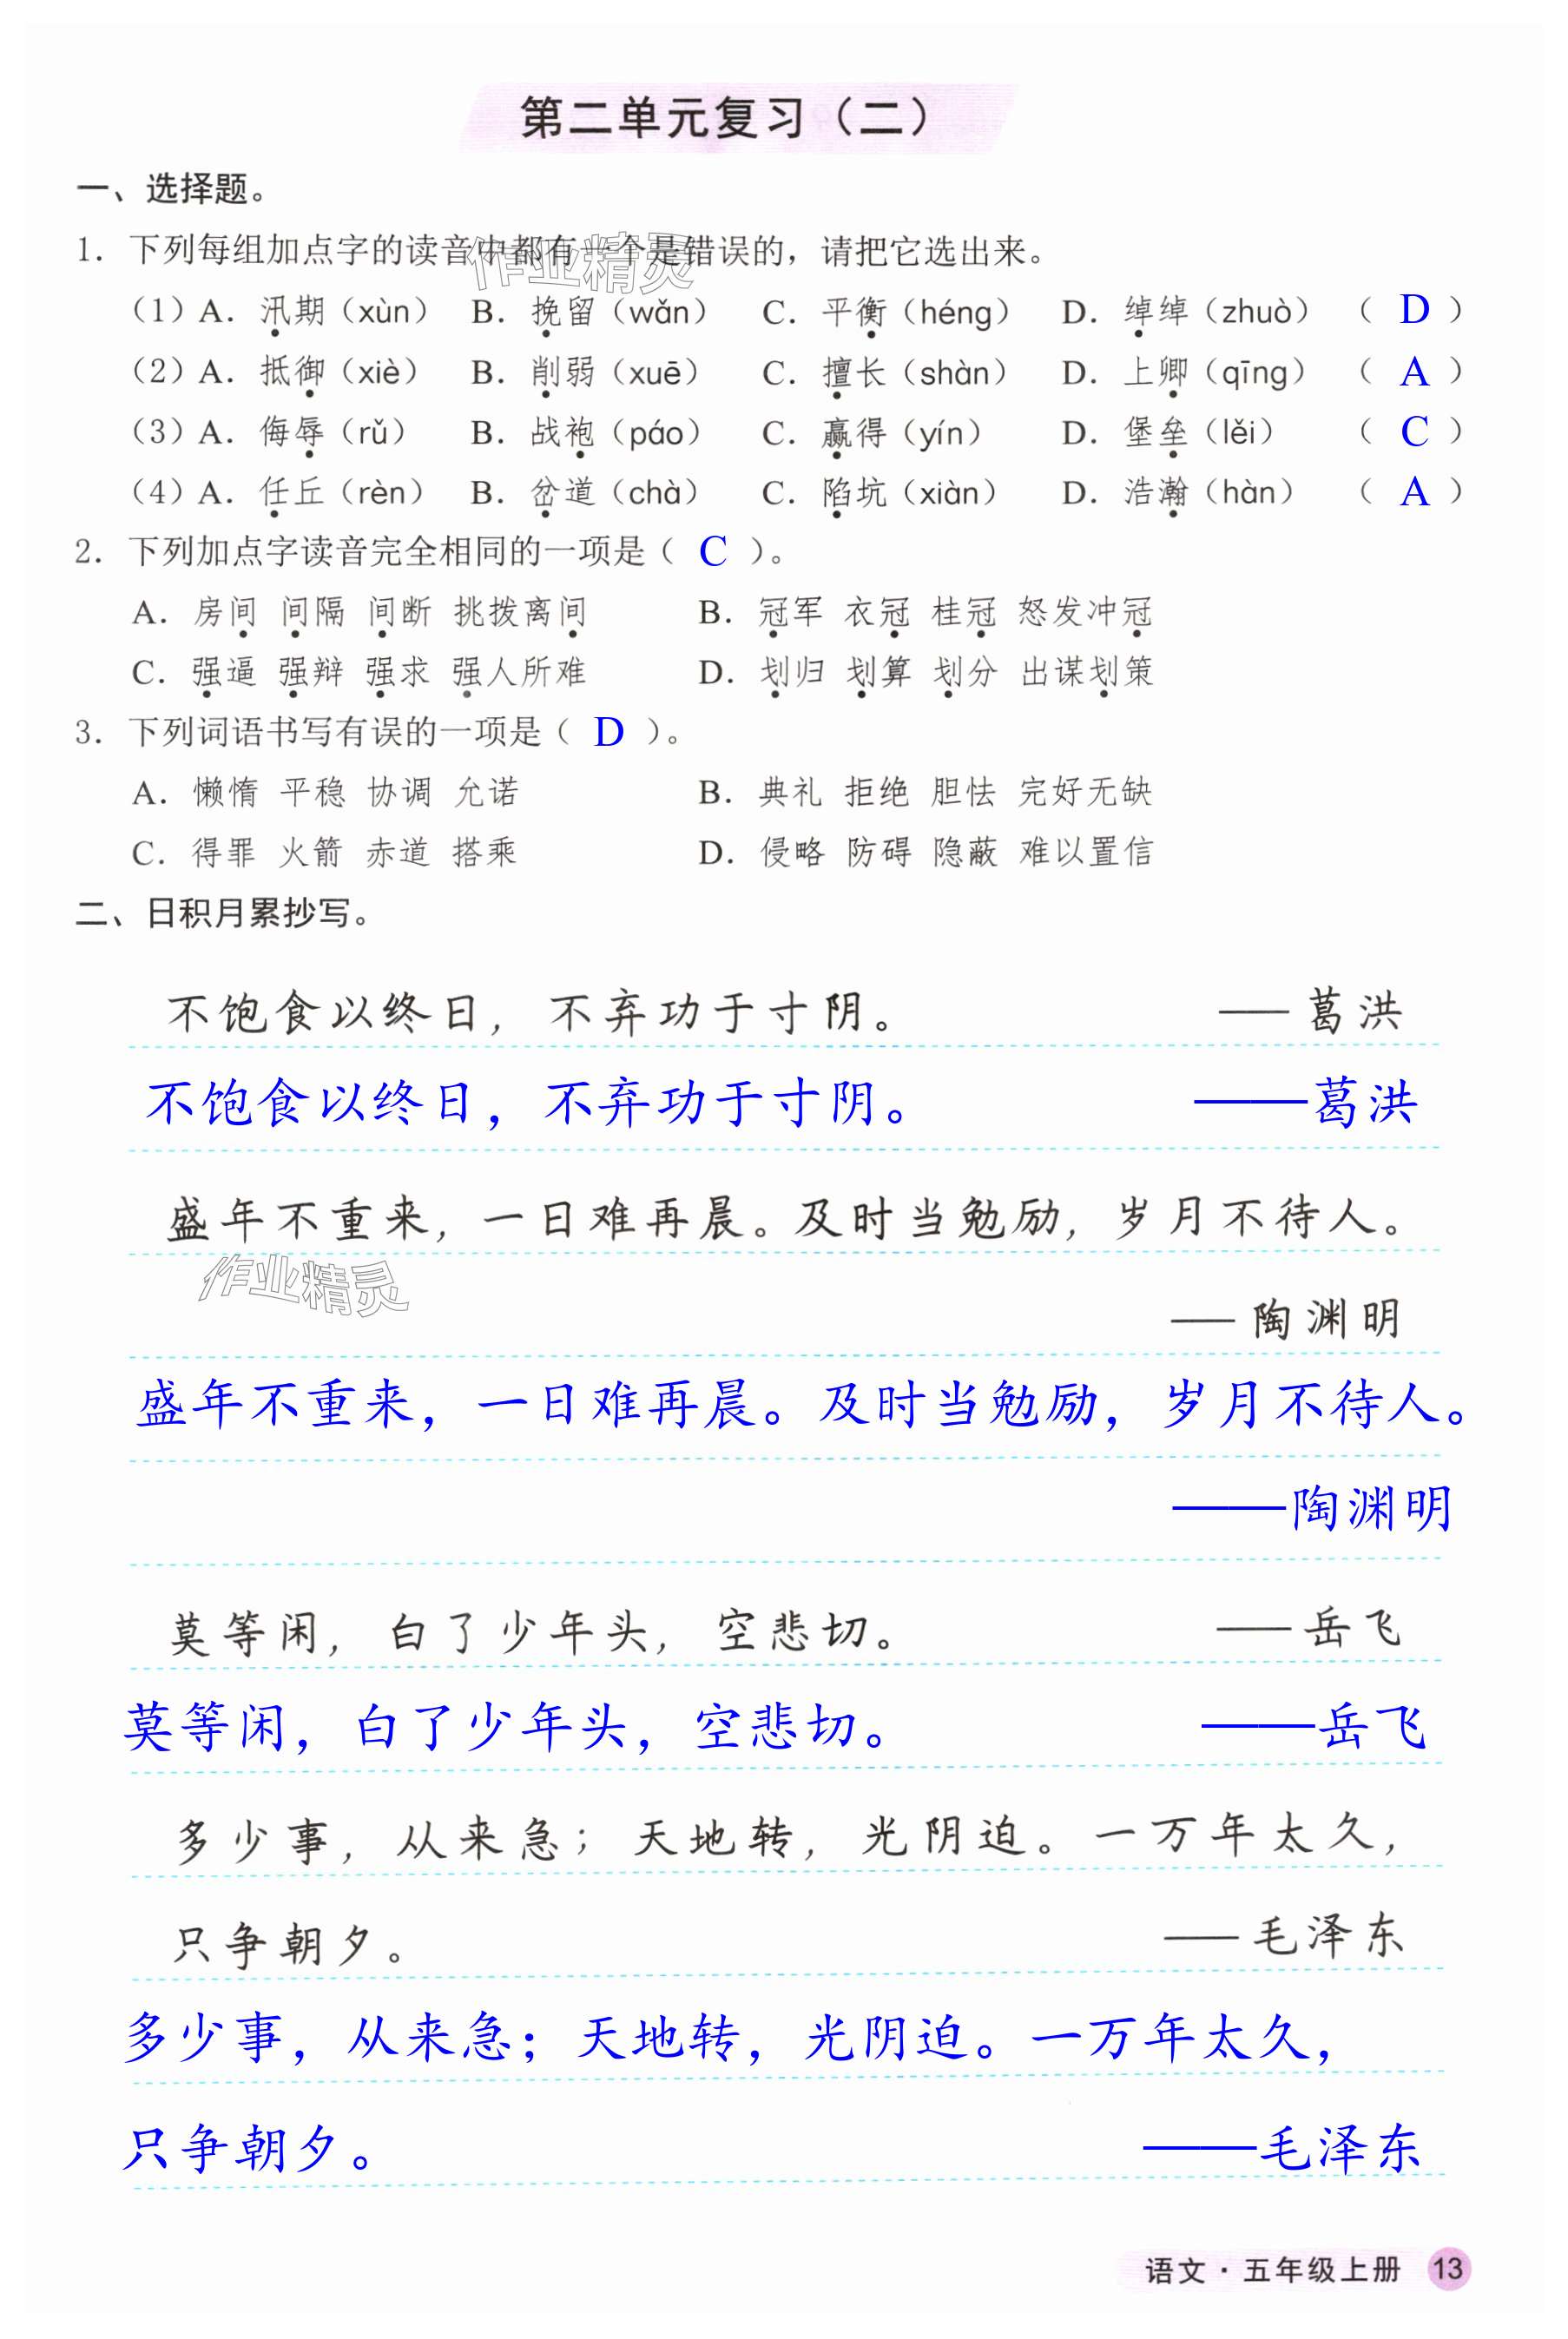 第二单元复习（二）
一、选择题。
1. 下列每组加点字的读音中都有一个是错误的，请把它选出来。
作业精灵
（1）A. 汛期（xùn） B. 挽留（wǎn） C. 平衡（héng） D. 绰绰（zhuò） （ D ）
（2）A. 抵御（xiè） B. 削弱（xuē） C. 擅长（shàn） D. 上卿（qīng） （ A ）
（3）A. 侮辱（rǔ） B. 战袍（páo） C. 赢得（yín） D. 堡垒（lěi） （ C ）
（4）A. 任丘（rèn） B. 岔道（chà） C. 陷坑（xiàn） D. 浩瀚（hàn） （ A ）
2. 下列加点字读音完全相同的一项是（ C ）。
A. 房间 间隔 间断 挑拨离间 B. 冠军 衣冠 桂冠 怒发冲冠
C. 强逼 强辩 强求 强人所难 D. 划归 划算 划分 出谋划策
3. 下列词语书写有误的一项是（ D ）。
A. 懒惰 平稳 协调 允诺 B. 典礼 拒绝 胆怯 完好无缺
C. 得罪 火箭 赤道 搭乘 D. 侵略 防碍 隐蔽 难以置信
二、日积月累抄写。
不饱食以终日，不弃功于寸阴。 ——葛洪
不饱食以终日，不弃功于寸阴。 ——葛洪
盛年不重来，一日难再晨。及时当勉励，岁月不待人。
作业精灵
——陶渊明
盛年不重来，一日难再晨。及时当勉励，岁月不待人。
——陶渊明
莫等闲，白了少年头，空悲切。 ——岳飞
莫等闲，白了少年头，空悲切。 ——岳飞
多少事，从来急；天地转，光阴迫。一万年太久，
只争朝夕。 ——毛泽东
多少事，从来急；天地转，光阴迫。一万年太久，
只争朝夕。 ——毛泽东
语文·五年级上册 13